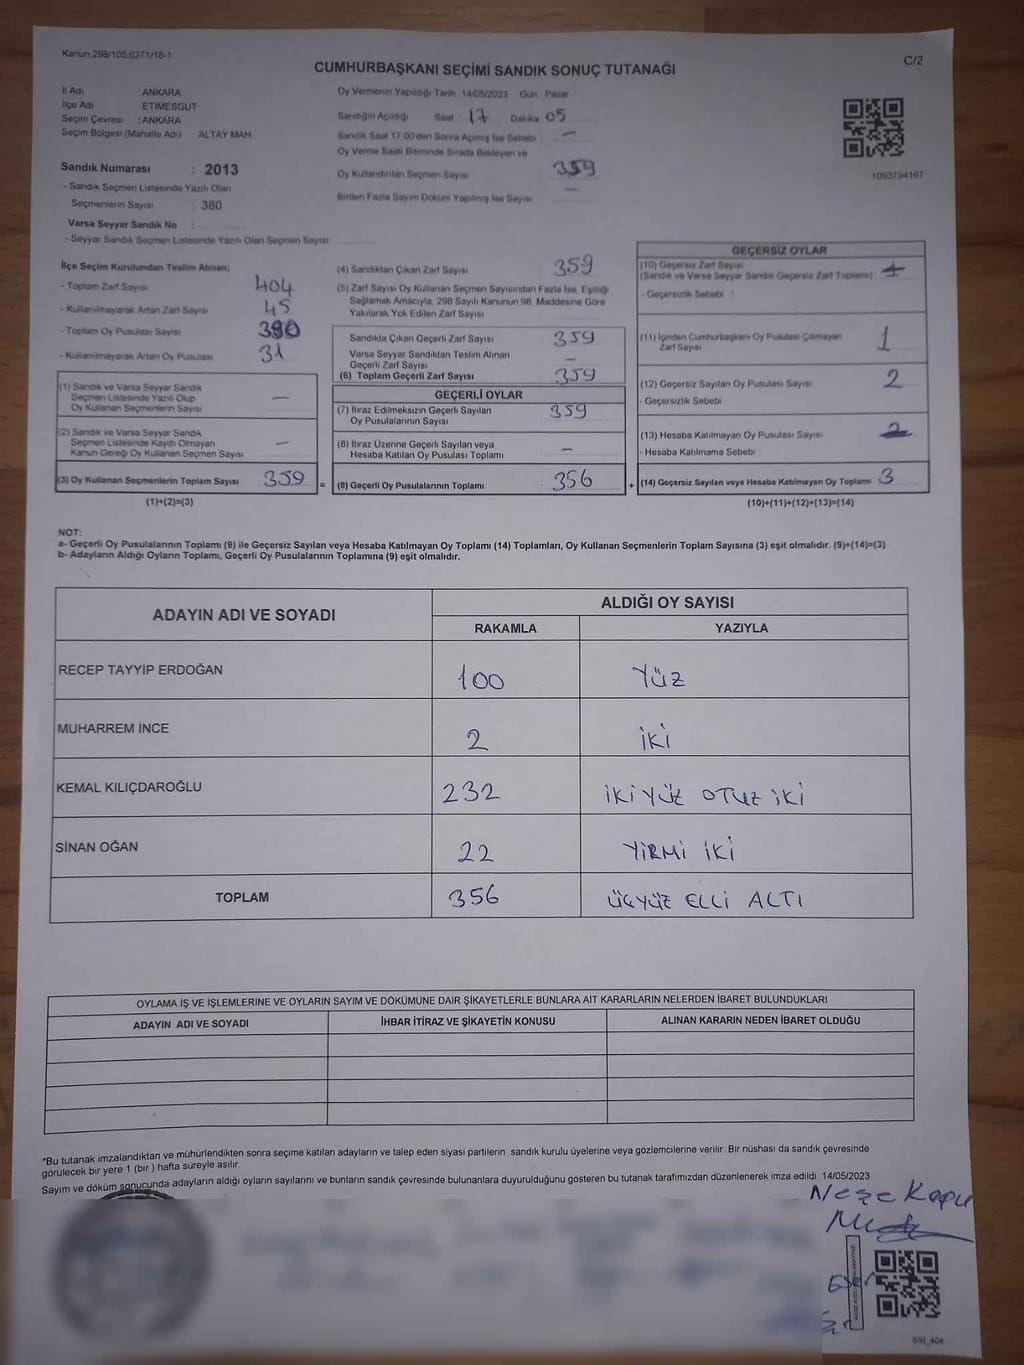 Kanun:298/105:6271/18-1
C/2
CUMHURBAŞKANI SEÇİMİ SANDIK SONUÇ TUTANAĞI
İl Adı ANKARA
İlçe Adı ETİMESGUT
Seçim Çevresi :ANKARA
Seçim Bölgesi (Mahalle Adı) ALTAY MAH
Sandık Numarası : 2013
- Sandık Seçmen Listesinde Yazılı Olan
Seçmenlerin Sayısı : 380
Varsa Seyyar Sandık No :
- Seyyar Sandık Seçmen Listesinde Yazılı Olan Seçmen Sayısı
Oy Vermenin Yapıldığı Tarih :14/05/2023 Gün Pazar
Sandığın Açıldığı Saat 17 Dakika 05
Sandık Saat 17:00'den Sonra Açılmış İse Sebebi : —
Oy Verme Saati Bitiminde Sırada Bekleyen ve
Oy Kullandırılan Seçmen Sayısı 359
Birden Fazla Sayım Döküm Yapılmış İse Sayısı —
1093794167
İlçe Seçim Kurulundan Teslim Alınan;
- Toplam Zarf Sayısı : 404
- Kullanılmayarak Artan Zarf Sayısı : 45
- Toplam Oy Pusulası Sayısı : 390
- Kullanılmayarak Artan Oy Pusulası : 31
(1) Sandık ve Varsa Seyyar Sandık
Seçmen Listesinde Yazılı Olup
Oy Kullanan Seçmenlerin Sayısı : —
(2) Sandık ve Varsa Seyyar Sandık
Seçmen Listesinde Kayıtlı Olmayan
Kanun Gereği Oy Kullanan Seçmen Sayısı : —
(3) Oy Kullanan Seçmenlerin Toplam Sayısı : 359
(1)+(2)=(3)
=
(4) Sandıktan Çıkan Zarf Sayısı : 359
(5) Zarf Sayısı Oy Kullanan Seçmen Sayısından Fazla İse, Eşitliği
Sağlamak Amacıyla, 298 Sayılı Kanunun 98. Maddesine Göre
Yakılarak Yok Edilen Zarf Sayısı
Sandıkta Çıkan Geçerli Zarf Sayısı : 359
Varsa Seyyar Sandıktan Teslim Alınan
Geçerli Zarf Sayısı : —
(6) Toplam Geçerli Zarf Sayısı : 359
GEÇERLİ OYLAR
(7) İtiraz Edilmeksizin Geçerli Sayılan
Oy Pusulalarının Sayısı : 359
(8) İtiraz Üzerine Geçerli Sayılan veya
Hesaba Katılan Oy Pusulası Toplamı : —
(9) Geçerli Oy Pusulalarının Toplamı : 356
+
GEÇERSİZ OYLAR
(10) Geçersiz Zarf Sayısı
(Sandık ve Varsa Seyyar Sandık Geçersiz Zarf Toplamı) :
- Geçersizlik Sebebi :
(11) İçinden Cumhurbaşkanı Oy Pusulası Çıkmayan
Zarf Sayısı : 1
(12) Geçersiz Sayılan Oy Pusulası Sayısı : 2
- Geçersizlik Sebebi
(13) Hesaba Katılmayan Oy Pusulası Sayısı
- Hesaba Katılmama Sebebi
(14) Geçersiz Sayılan veya Hesaba Katılmayan Oy Toplamı : 3
(10)+(11)+(12)+(13)=(14)
NOT:
a- Geçerli Oy Pusulalarının Toplamı (9) ile Geçersiz Sayılan veya Hesaba Katılmayan Oy Toplamı (14) Toplamları, Oy Kullanan Seçmenlerin Toplam Sayısına (3) eşit olmalıdır. (9)+(14)=(3)
b- Adayların Aldığı Oyların Toplamı, Geçerli Oy Pusulalarının Toplamına (9) eşit olmalıdır.
ADAYIN ADI VE SOYADI
ALDIĞI OY SAYISI
RAKAMLA YAZIYLA
RECEP TAYYIP ERDOĞAN 100 YÜZ
MUHARREM İNCE 2 İKİ
KEMAL KILIÇDAROĞLU 232 İKİ YÜZ OTUZ İKİ
SİNAN OĞAN 22 YİRMİ İKİ
TOPLAM 356 ÜÇYÜZ ELLİ ALTI
OYLAMA İŞ VE İŞLEMLERİNE VE OYLARIN SAYIM VE DÖKÜMÜNE DAİR ŞİKAYETLERLE BUNLARA AİT KARARLARIN NELERDEN İBARET BULUNDUKLARI
ADAYIN ADI VE SOYADI İHBAR İTİRAZ VE ŞİKAYETİN KONUSU ALINAN KARARIN NEDEN İBARET OLDUĞU
*Bu tutanak imzalandıktan ve mühürlendikten sonra seçime katılan adayların ve talep eden siyasi partilerin sandık kurulu üyelerine veya gözlemcilerine verilir. Bir nüshası da sandık çevresinde
görülecek bir yere 1 (bir ) hafta süreyle asılır.
Sayım ve döküm sonucunda adayların aldığı oyların sayılarını ve bunların sandık çevresinde bulunanlara duyurulduğunu gösteren bu tutanak tarafımızdan düzenlenerek imza edildi 14/05/2023
Neşe
SSI_404